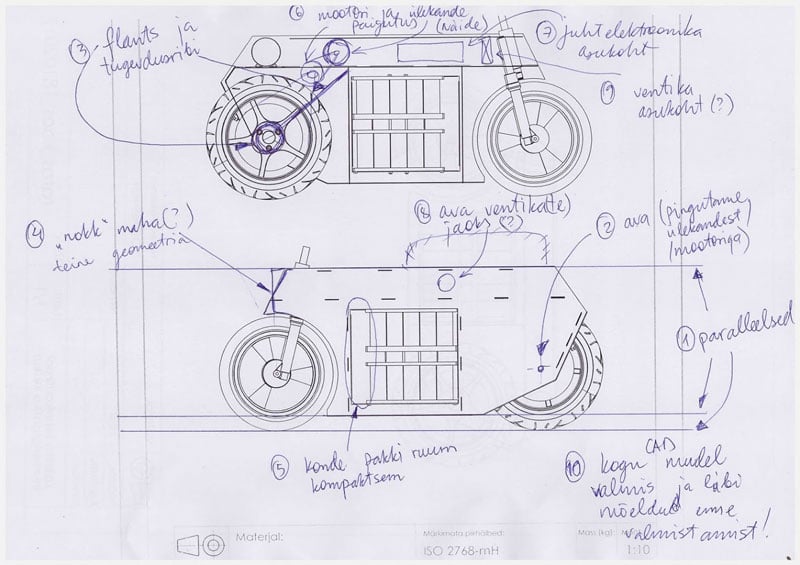 ⑥ mootori ja ülekande
paigutus (näide)
③ flants ja
tugevdusribi
⑦ juhtelektroonika
asukoht
⑨ ventika
asukoht (?)
④ "nokk" maha (?)
teine geomeetria
⑧ ava ventika(te)
jaoks (?)
② ava (pingutamine,
ülekandest
/mootoriga)
① paralleelsed
⑤ konde pakki ruum
kompaktsem
⑩ kogu CAD mudel
valmis ja läbi
mõeldud enne
valmistamist!
Materjal:
Märkimata piirhälbed:
ISO 2768-mH
Mass (kg):
1:10